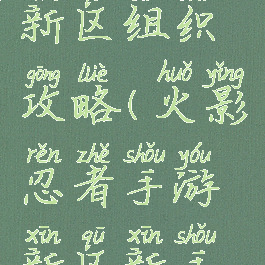 新区组织
gōng lüè huǒ yǐng
攻略(火影
rěn zhě shǒu yóu
忍者手游
xīn qū xīn shǒu
新区新手